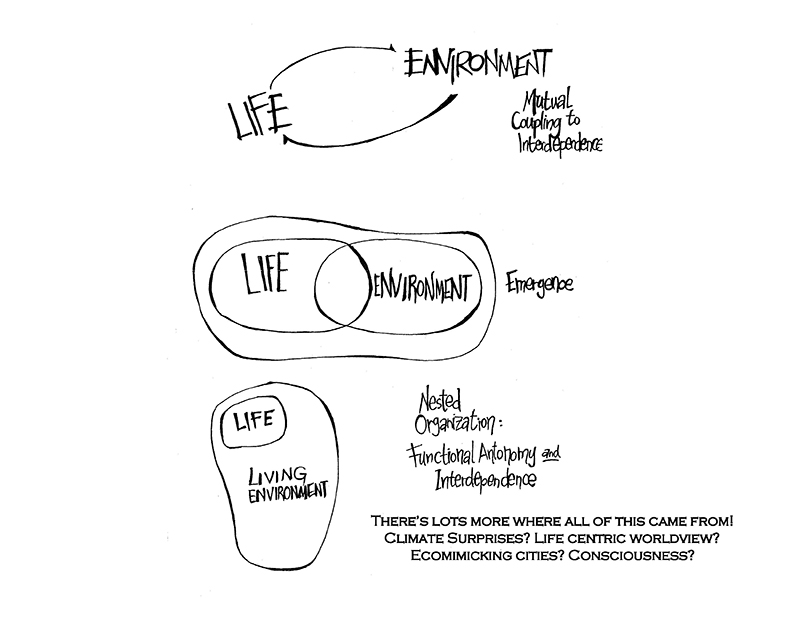 LIFE
ENVIRONMENT
Mutual
Coupling to
Interdependence
LIFE
ENVIRONMENT
Emergence
LIFE
LIVING
ENVIRONMENT
Nested
Organization:
Functional Autonomy and
Interdependence
THERE'S LOTS MORE WHERE ALL OF THIS CAME FROM!
CLIMATE SURPRISES? LIFE CENTRIC WORLDVIEW?
ECOMIMICKING CITIES? CONSCIOUSNESS?